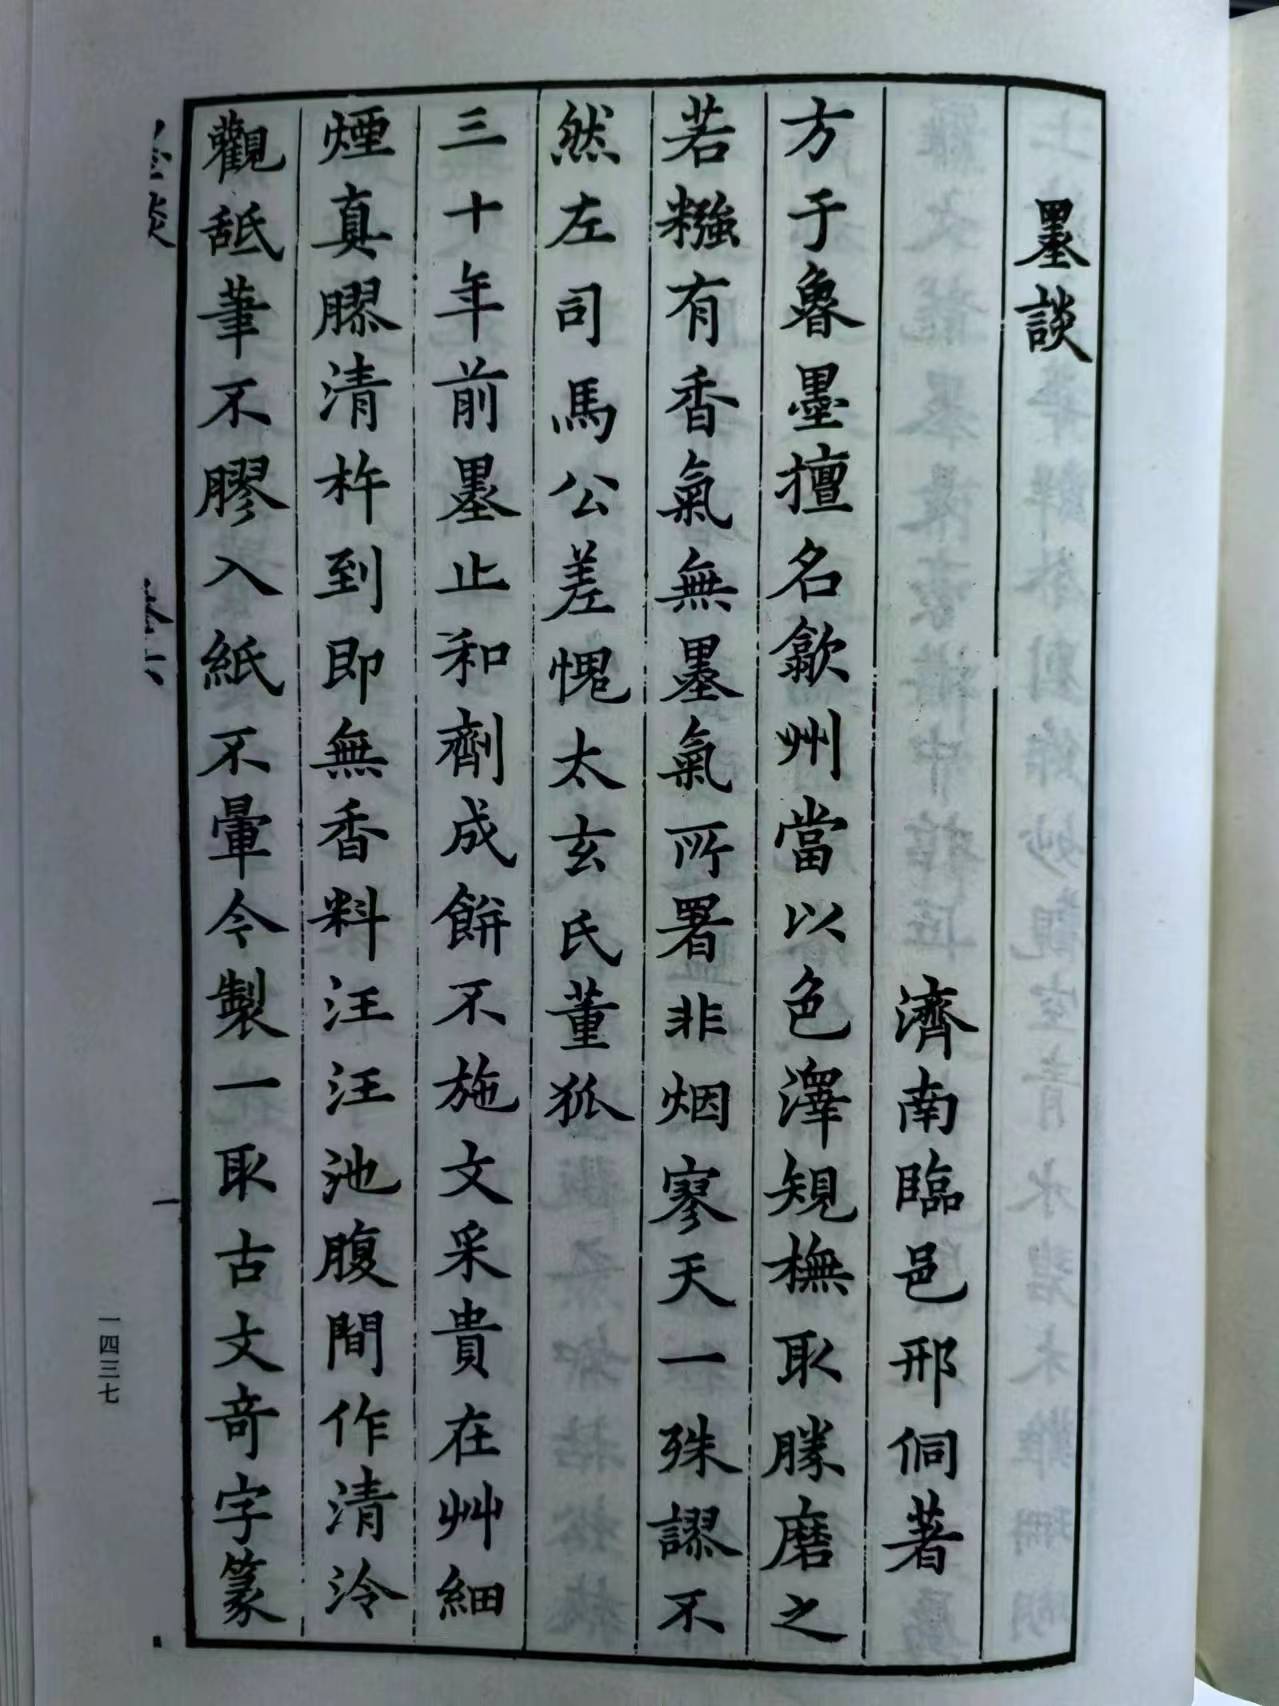 墨談
濟南臨邑邢侗著
方于魯墨擅名歙州當以色澤規橅取勝磨之
若糨有香氣無墨氣所署非烟寥天一殊謬不
然左司馬公差愧太玄氏董狐
三十年前墨止和劑成餅不施文采貴在艸細
煙真膠清杵到即無香料汪汪池腹間作清泠
觀舐筆不膠入紙不暈今製一取古文奇字篆
卷六
一
一四三七